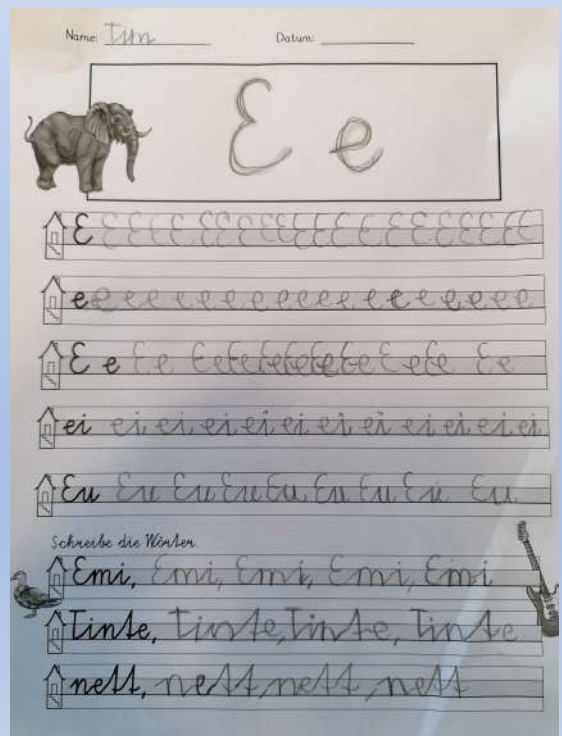 Name: Tim Datum:
E e
E E E E E E E E E E E E E E E E E
e e e e e e e e e e e e e e e e e e
E e E e E e E e E e E e E e E e E e E e
ei ei ei ei ei ei ei ei ei ei ei ei
Eu Eu Eu Eu Eu Eu Eu Eu Eu
Schreibe die Wörter.
Emi, Emi, Emi, Emi, Emi
Tinte, Tinte, Tinte, Tinte
nett, nett, nett, nett